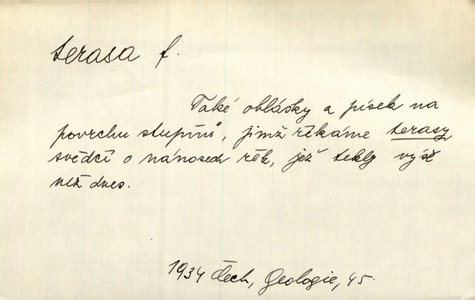 terasa f.
Také oblásky a písek na
povrchu stupňů, jimž říkáme terasy
svědčí o nánosech řek, jež tekly výše
než dnes.
1934 Čech, Geologie, 45.